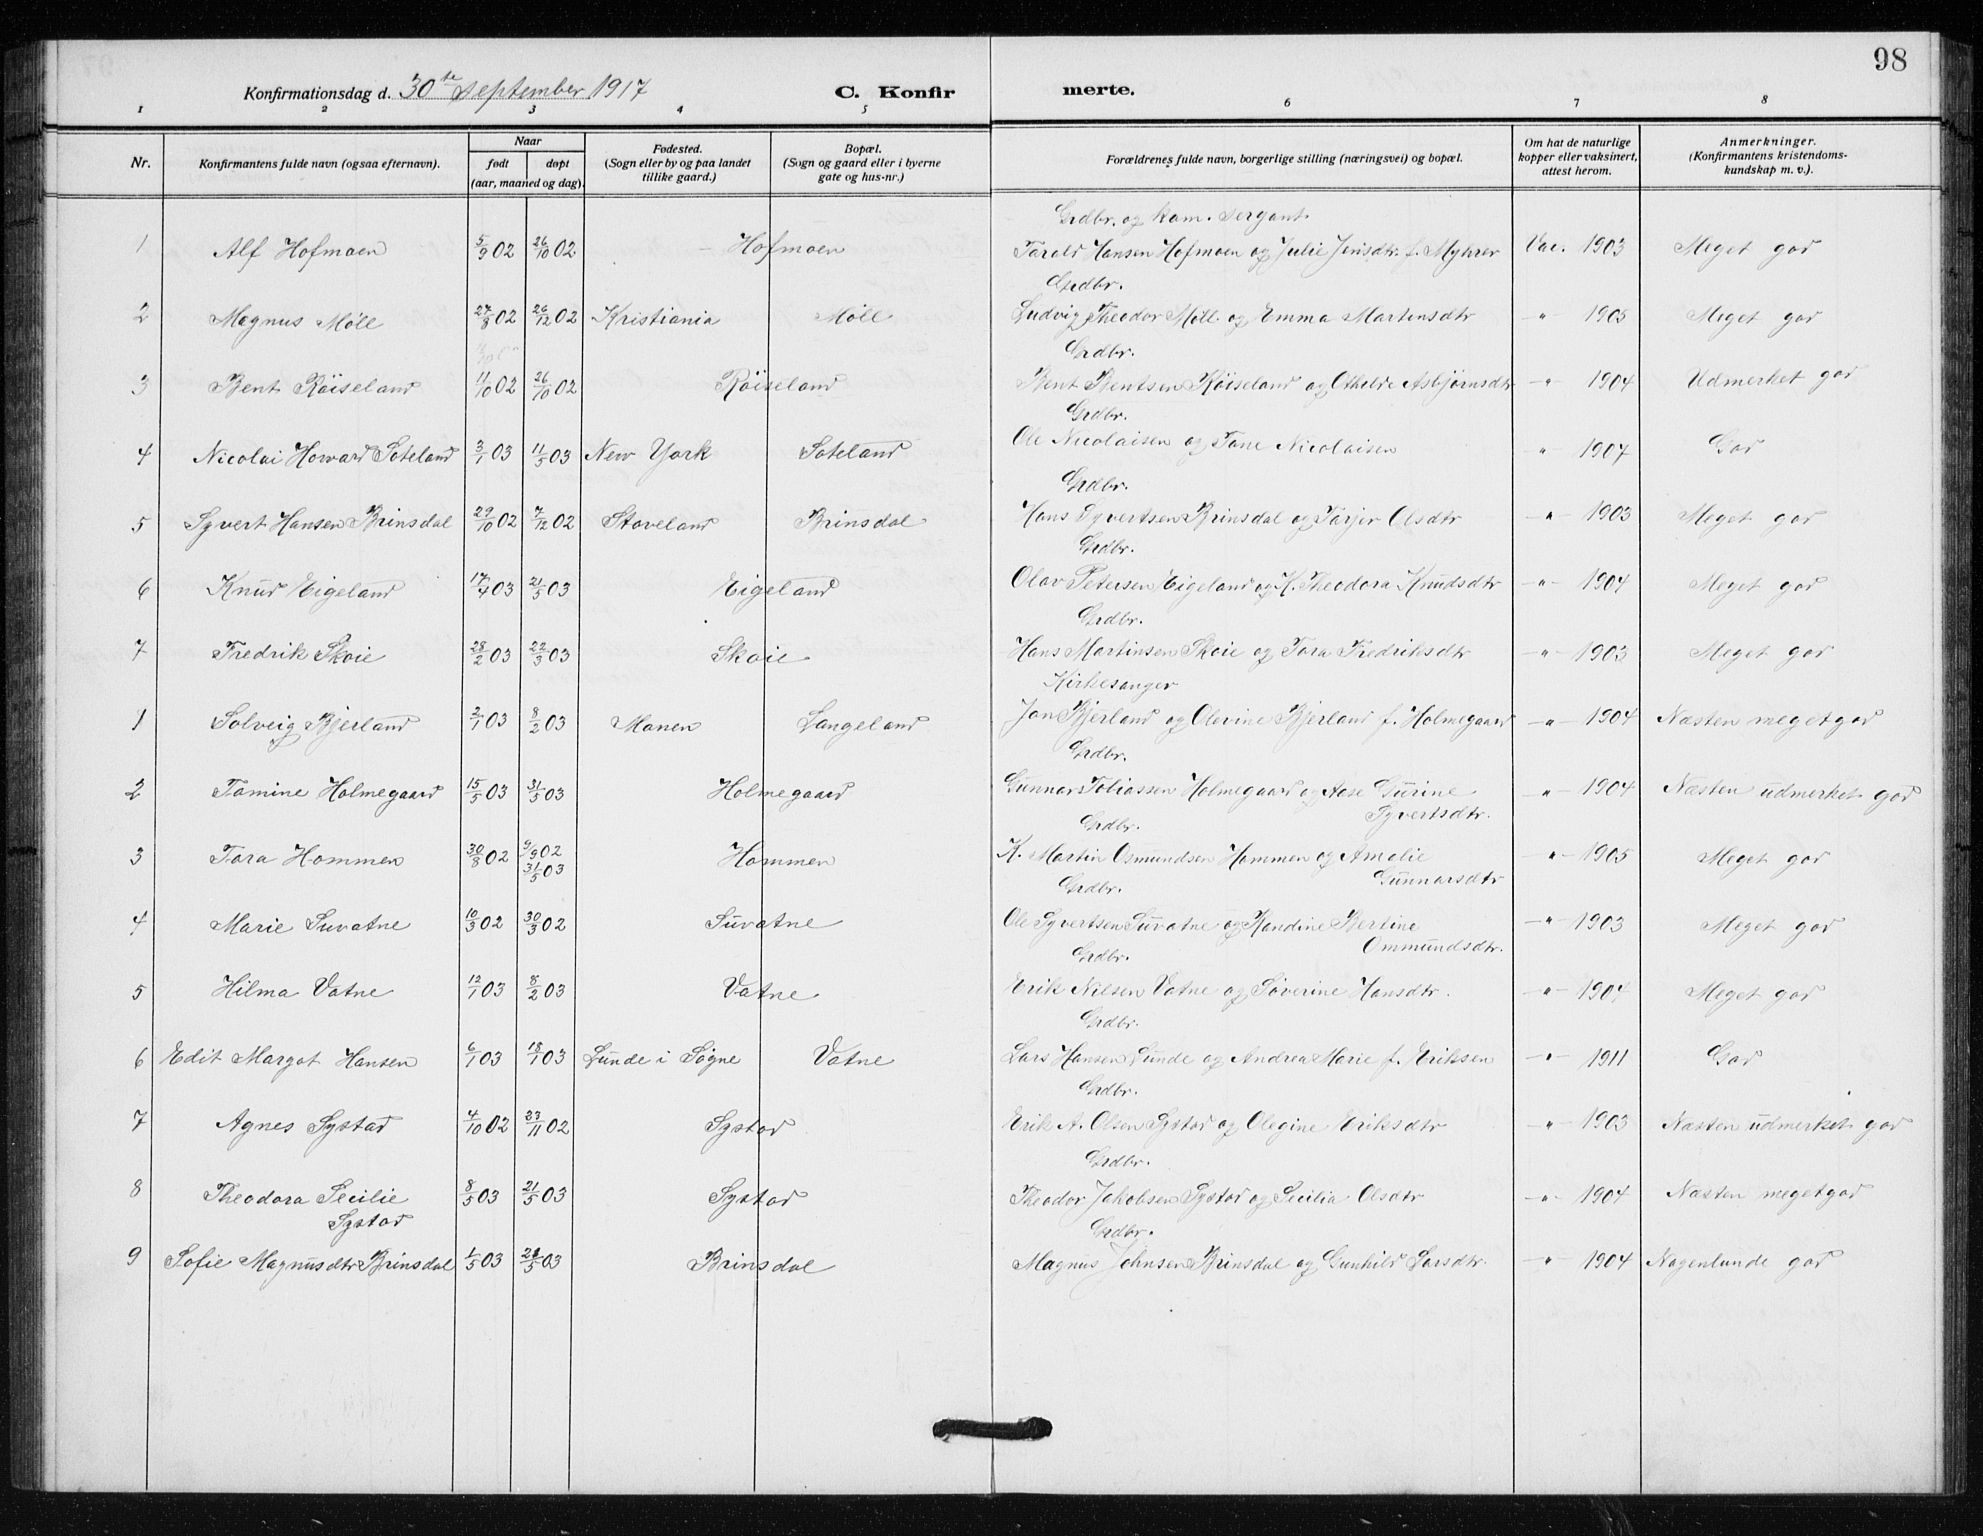 98
Konfirmationsdag d. 30te September 1917 C. Konfirmerte.
1 2 3 4 5 6 7 8
Nr. Konfirmantens fulde navn (ogsaa efternavn). Naar født døpt (aar, maaned og dag). Fødested. (Sogn eller by og paa landet tillike gaard.) Bopæl. (Sogn og gaard eller i byerne gate og hus-nr.) Forældrenes fulde navn, borgerlige stilling (næringsvei) og bopæl. Om hat de naturlige kopper eller vaksinert, attest herom. Anmerkninger. (Konfirmantens kristendomskundskap m. v.).
Grdbr. og kom. sergant.
1 Alf Hofmoen 5/9 02 26/10 02 Hofmoen Tarald Hansen Hofmoen og Julie Jensdtr. f. Myhrer Vac. 1903 Meget god
Grdbr.
2 Magnus Möll 27/8 02 26/12 02 Kristiania Möll Ludvig Theodor Möll og Emma Martensdtr -"- 1905 Meget god
Grdbr.
3 Bent Röiseland 11/10 02 26/10 02 Röiseland Bent Bentsen Röiseland og Othelde Asbjørnsdtr -"- 1904 Udmerket god
Grdbr.
4 Nicolai Howard Soteland 3/1 03 11/5 03 New York Soteland Ole Nicolaisen og Tone Nicolaisen " 1907 God
Grdbr.
5 Syvert Hansen Brinsdal 29/10 02 7/12 02 Stoveland Brinsdal Hans Syvertsen Brinsdal og Tarjer Olsdtr -"- 1903 Meget god
Grdbr.
6 Knud Eigeland 17/4 03 21/5 03 Eigeland Olav Petersen Eigeland og K. Theodora Knudsdtr -"- 1904 Meget god
Grdbr.
7 Fredrik Skoie 28/2 03 22/3 03 Skoie Hans Martinsen Skoie og Tora Fredriksdtr -"- 1903 Meget god
Kirkesanger
1 Solveig Bjerland 2/1 03 8/2 03 Monen Langeland Jon Bjerland og Olevine Bjerland f. Holmegaard -"- 1904 Næsten meget god
Grdbr.
2 Tomine Holmegaard 15/5 03 31/5 03 Holmegaard Gunnar Tobiassen Holmegaard og Aase Gurine Syvertsdtr. -"- 1904 Næsten udmerket god
Grdbr.
3 Tora Hommen 30/8 02 9/9 02 31/5 03 Hommen K. Martin Osmundsen Hommen og Amalie Gunnarsdtr "- 1905 Meget god
Grdbr.
4 Marie Suvatne 10/3 02 30/3 02 Suvatne Ole Syvertsen Suvatne og Randine Bertine Ommundsdtr. -"- 1903 Meget god
Grdbr.
5 Hilma Vatne 12/1 03 8/2 03 Vatne Erik Nilsen Vatne og Severine Hansdtr. -"- 1904 Meget god
Grdbr.
6 Edit Margot Hansen 6/1 03 18/1 03 Lunde i Søgne Vatne Lars Hansen Lunde og Andrea Marie f. Eriksen -"- 1911 God
Grdbr.
7 Agnes Systad 4/10 02 23/11 02 Systad Erik A. Olsen Systad og Olegine Eriksdtr -"- 1903 Næsten udmerket god
Grdbr.
8 Theodora Secilie Systad 8/5 03 21/5 03 Systad Theodor Jakobsen Systad og Secilia Olsdtr -"- 1904 Næsten meget god
Grdbr.
9 Sofie Magnusdtr Brinsdal 1/5 03 21/5 03 Brinsdal Magnus Johnsen Brinsdal og Gunhild Larsdtr. -"- 1904 Nogenlunde god